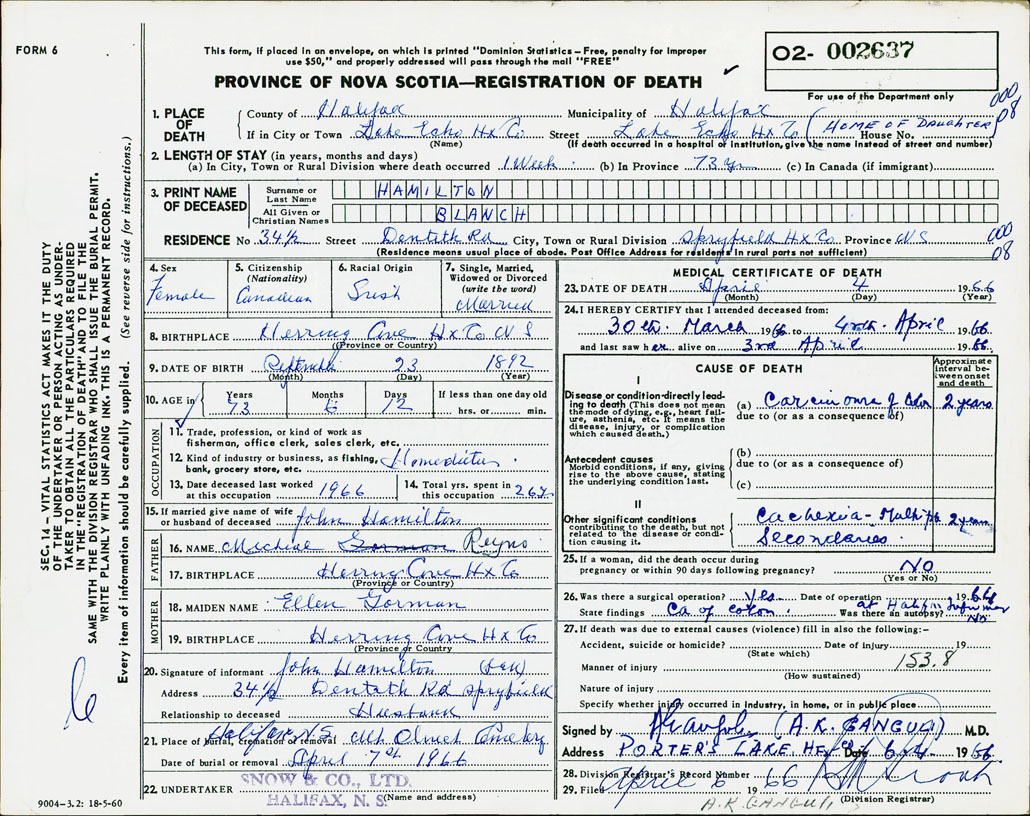 FORM 6
This form, if placed in an envelope, on which is printed "Dominion Statistics – Free, penalty for improper
use $50," and properly addressed will pass through the mail "FREE"
O2- 002637
PROVINCE OF NOVA SCOTIA—REGISTRATION OF DEATH
For use of the Department only
000
08
1. PLACE OF DEATH
County of Halifax Municipality of Halifax
If in City or Town Lake Echo Hx Co Street Lake Echo Hx Co (HOME OF DAUGHTER) House No.
(Name) (If death occurred in a hospital or institution, give the name instead of street and number)
2. LENGTH OF STAY (in years, months and days)
(a) In City, Town or Rural Division where death occurred 1 Week (b) In Province 73 yr (c) In Canada (if immigrant)
3. PRINT NAME OF DECEASED
Surname or Last Name HAMILTON
All Given or Christian Names BLANCH
RESIDENCE No 34½ Street Dentith Rd City, Town or Rural Division Spryfield Hx Co Province N S
(Residence means usual place of abode. Post Office Address for residents in rural parts not sufficient)
000
08
4. Sex
Female
5. Citizenship (Nationality)
Canadian
6. Racial Origin
Irish
7. Single, Married, Widowed or Divorced (write the word)
Married
8. BIRTHPLACE Herring Cove Hx Co N S
(Province or Country)
9. DATE OF BIRTH 23 1892
(Month) (Day) (Year)
10. AGE in Years Months Days If less than one day old
73 6 12 hrs. or min.
OCCUPATION
11. Trade, profession, or kind of work as
fisherman, office clerk, sales clerk, etc.
12. Kind of industry or business, as fishing,
bank, grocery store, etc.
13. Date deceased last worked
at this occupation 1966
14. Total yrs. spent in
this occupation
15. If married give name of wife
or husband of deceased John Hamilton
FATHER
16. NAME Gorman
17. BIRTHPLACE Herring Cove Hx Co
(Province or Country)
MOTHER
18. MAIDEN NAME Ellen Gorman
19. BIRTHPLACE Herring Cove Hx Co
(Province or Country
20. Signature of informant John Hamilton
Address 34½ Dentith Rd Spryfield
Relationship to deceased Husband
21. Place of burial, cremation or removal Halifax N.S. Mt Olivet Cemetery
Date of burial or removal April 7th 1966
22. UNDERTAKER SNOW & CO., LTD.
HALIFAX, N. S.
(Name and address)
9004-3.2: 18-5-60
MEDICAL CERTIFICATE OF DEATH
23. DATE OF DEATH April 4 1966
(Month) (Day) (Year)
24. I HEREBY CERTIFY that I attended deceased from:
30th. March 1966 to 4th. April 1966
and last saw her alive on 3rd April 1966
CAUSE OF DEATH
Approximate interval between onset and death
I
Disease or condition directly leading to death (This does not mean the mode of dying, e.g., heart failure, asthenia, etc. It means the disease, injury, or complication which caused death.)
(a) Carcinoma of Colon 2 years
due to (or as a consequence of)
Antecedent causes
Morbid conditions, if any, giving rise to the above cause, stating the underlying condition last.
(b)
due to (or as a consequence of)
(c)
II
Other significant conditions contributing to the death, but not related to the disease or condition causing it.
Cachexia - Multiple 2 years
Secondaries
25. If a woman, did the death occur during
pregnancy or within 90 days following pregnancy? NO
(Yes or No)
26. Was there a surgical operation? Yes Date of operation 1966
at Halifax Infirmary
State findings Ca of colon. Was there an autopsy? NO
27. If death was due to external causes (violence) fill in also the following:–
Accident, suicide or homicide? Date of injury 19
(State which)
153.8
Manner of injury
(How sustained)
Nature of injury
Specify whether injury occurred in Industry, in home, or in public place
Signed by (A.K. GANGULI) M.D.
Address PORTER'S LAKE Date 6.4. 1966
28. Division Registrar's Record Number
29. Filed April 6 1966
(Division Registrar)
A.K. GANGULI
SEC. 14 – VITAL STATISTICS ACT MAKES IT THE DUTY
OF THE UNDERTAKER OR PERSON ACTING AS UNDER-
TAKER TO OBTAIN ALL THE PARTICULARS REQUIRED
IN THE "REGISTRATION OF DEATH" AND TO FILE THE
SAME WITH THE DIVISION REGISTRAR WHO SHALL ISSUE THE BURIAL PERMIT.
WRITE PLAINLY WITH UNFADING INK. THIS IS A PERMANENT RECORD.
Every item of information should be carefully supplied. (See reverse side for instructions.)